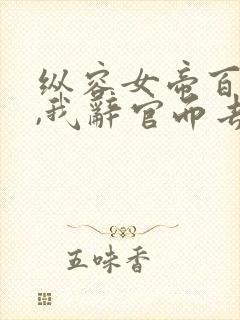 纵容女帝百
,我辞官而去
五味香